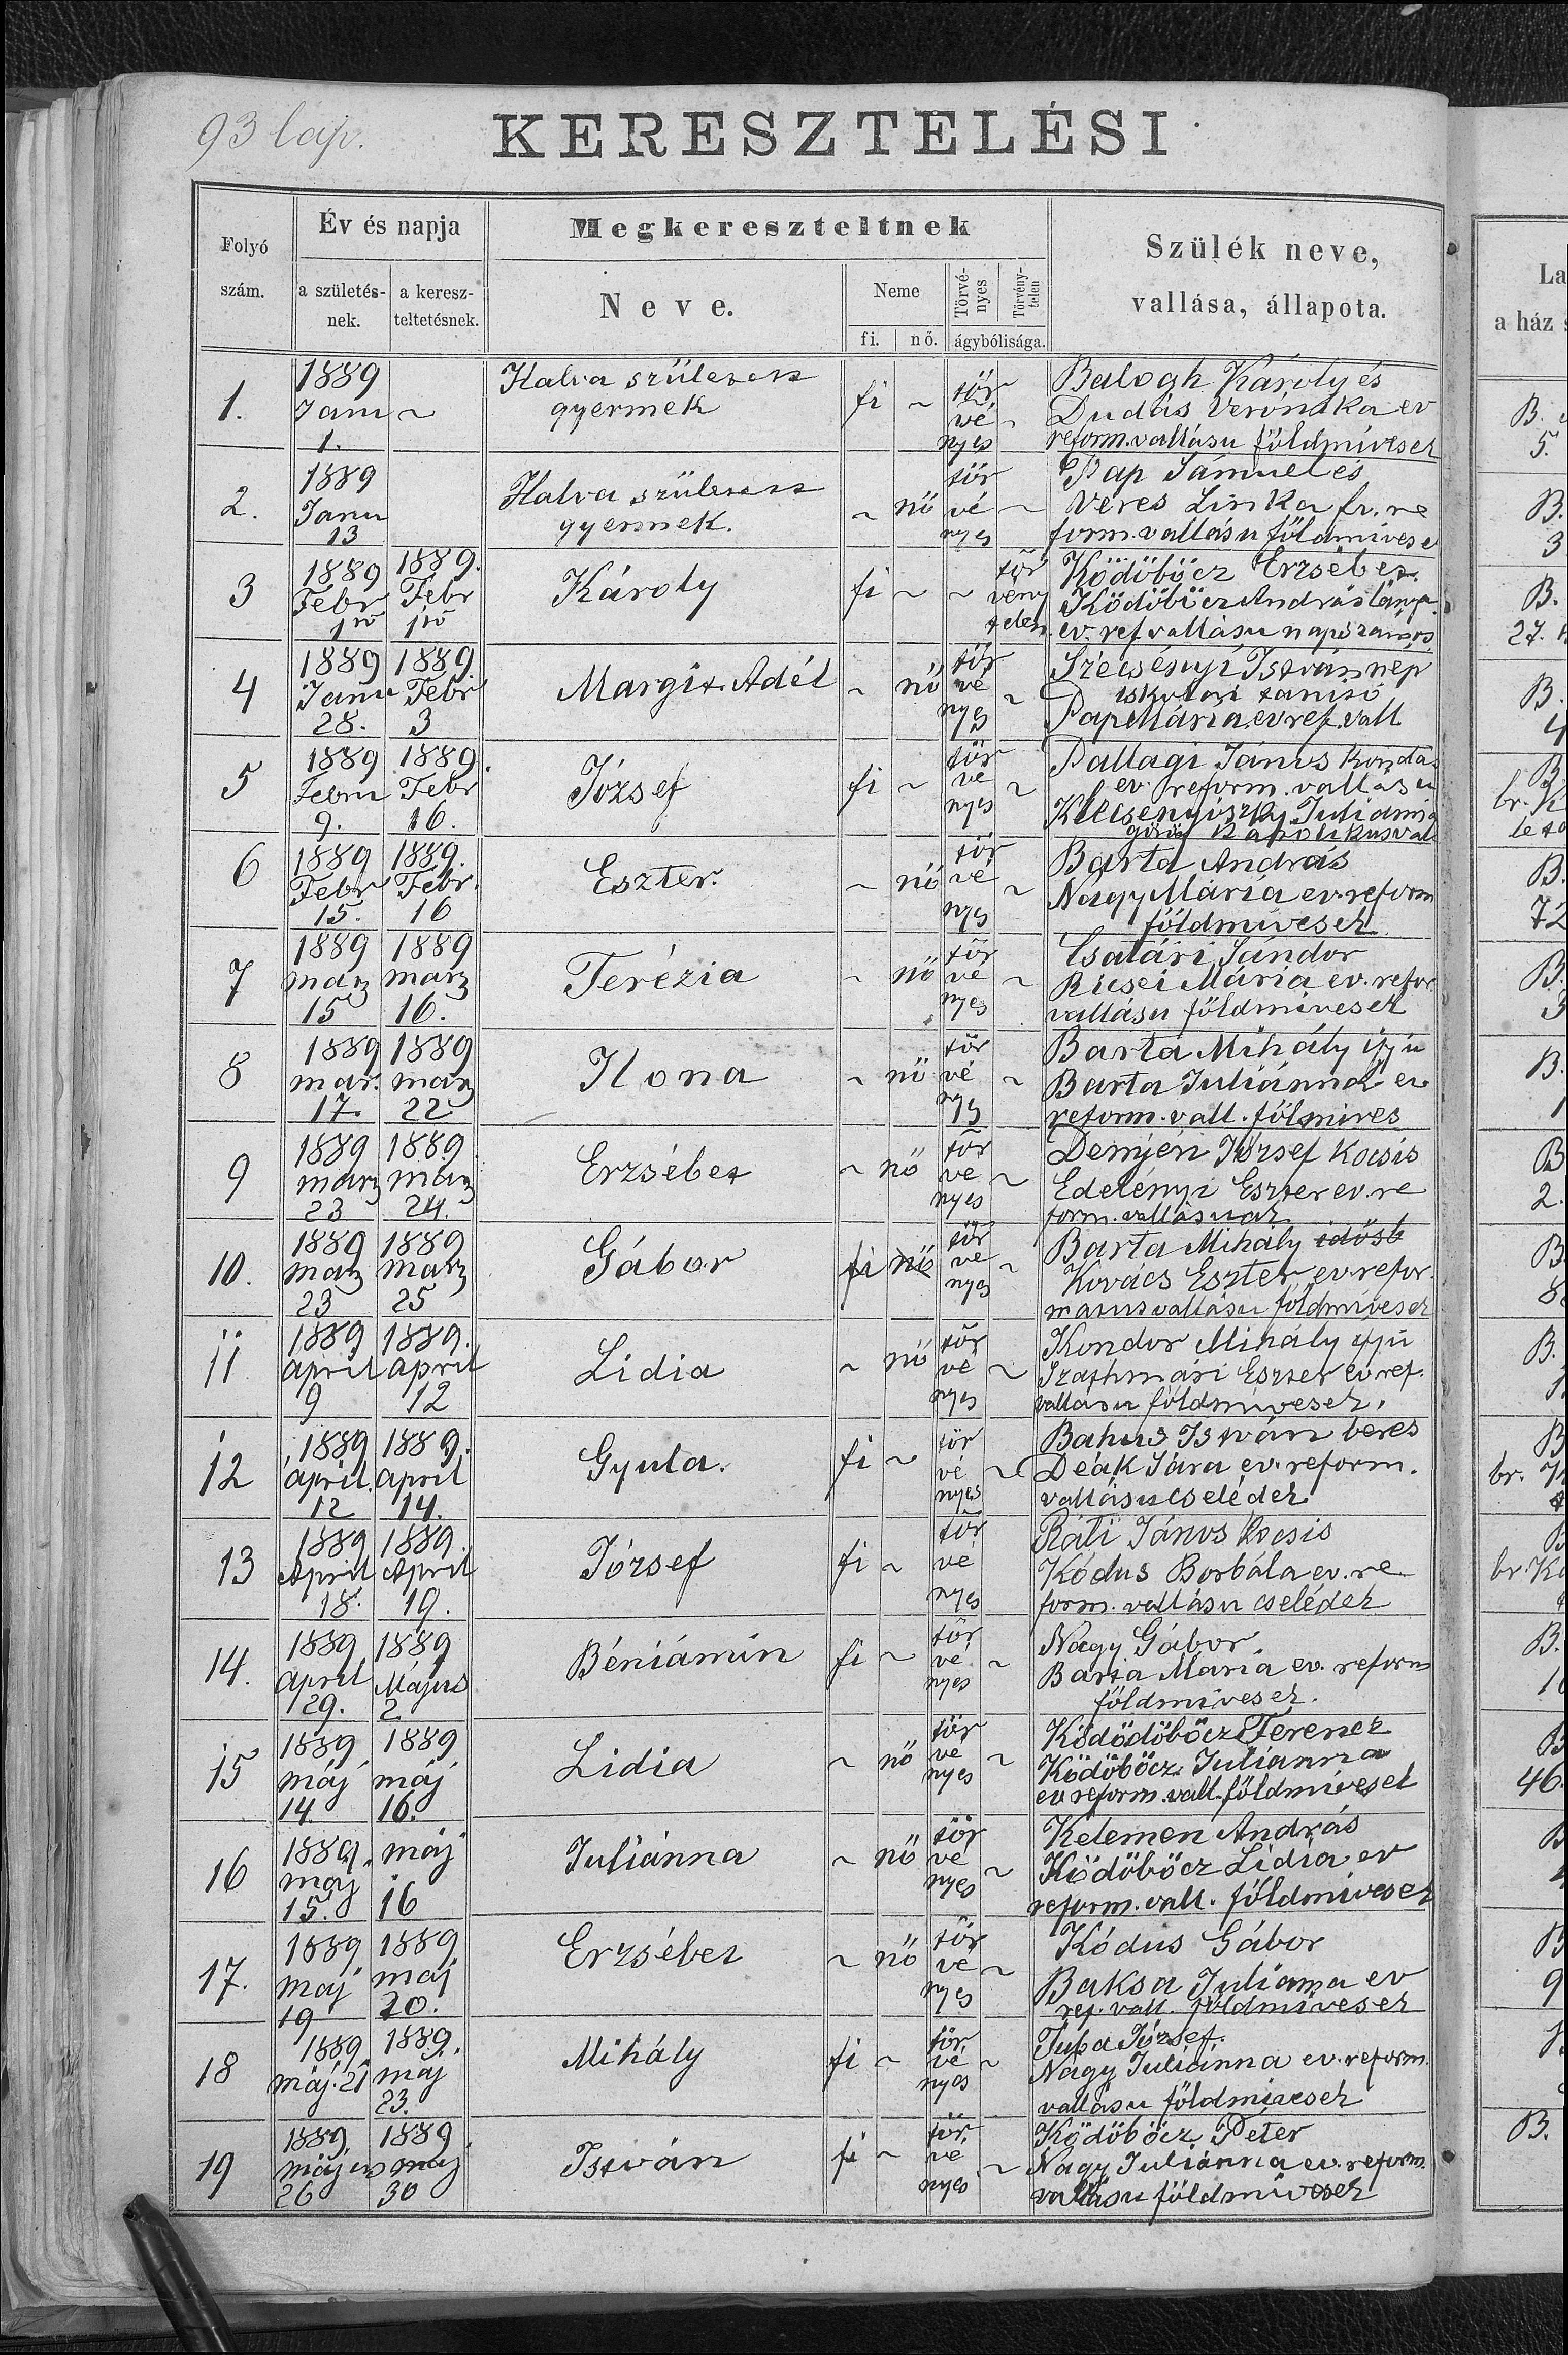 93 lap.
KERESZTELÉSI
Folyó szám.
Év és napja
a születés-
nek.
a keresz-
teltetésnek.
Megkereszteltnek
Neve.
Neme
fi.
nő.
Törvé-
nyes
Törvény-
telen
ágybólisága.
Szülék neve,
vallása, állapota.
La
a ház
1. 1889 Janu 1. ~ Halva született gyermek fi ~ tör vé nyes ~
Balogh Károly és
Dudás Verónika ev
reform. vallásu földmivesek
B.
5.
2. 1889 Janu 13 Halva született gyermek. ~ nő tör vé nyes ~
Pap Sámuel és
Veres Linka ev. re
form. vallásu földmivese
B.
3
3 1889 Febr 1ső 1889. Febr 1ső Károly fi ~ ~ tör vény telen
Ködöböcz Erzsébet.
Ködöböcz András lánya
ev. ref vallásu napszámos
B.
27.
4 1889 Janu 28. 1889. Febr 3 Margit. Adél ~ nő tör vé nyes ~
Szécsényi István nép
iskolai tanító
Pap Mária. ev ref. vall
B.
4
5 1889 Febru 9. 1889. Febr 16. József fi ~ tör vé nyes ~
Pallagi János kondás
ev reform. vallásu
Juliánna
B
br.
6 1889 Febr 15. 1889. Febr. 16 Eszter. ~ nő tör vé nyes ~
Barta András
Nagy Mária ev. reform
földmivesek
B.
72
7 1889 márz 15 1889 márz 16. Terézia ~ nő tör vé nyes ~
Csatári Sándor
Ricsei Mária ev. refor.
vallásu földmivesek
B.
3
8 1889 mar. 17. 1889 marz 22 Ilona ~ nő tör vé nyes ~
Barta Mihály ifjú
Barta Juliánna ev
reform. vall. fölmives
B.
1
9 1889 márz 23 1889. márz 24. Erzsébet ~ nő tör vé nyes ~
Demjén József Kocsis
Edelényi Eszter ev. re
form. vallásuak
B
2.
10. 1889 marz 23 1889 marz 25 Gábor fi nő tör vé nyes ~
Barta Mihály idősb
Kovács Eszter ev. refor.
matus vallásu földmivesek
B
8.
11 1889 april 9 1889. april 12 Lidia ~ nő tör vé nyes ~
Kondor Mihály ifjú
Szathmári Eszter ev ref.
vallásu földmivesek.
B.
1.
12 1889 april. 12 1889. april 14. Gyula. fi ~ tör vé nyes ~
Bahus István béres
Deák Sára ev. reform.
vallásu cselédek
B
br.
13 1889 April 18. 1889. April 19. József fi ~ tör vé nyes
Ráti János kocsis
Kódus Borbála ev. re
form. vallásu cselédek
B
br. Ko
14. 1889 April 29. 1889 Május 2. Béniámin fi ~ tör vé nyes ~
Nagy Gábor.
Barta Mária ev. reform
földmivesek.
B.
10
15 1889 máj 14. 1889 máj 16. Lidia ~ nő tör vé nyes ~
Ködödöböcz Ferencz
Ködöböcz Juliánna
ev reform. vall. földmivesek
B
46.
16 1889. máj 15. máj 16 Juliánna ~ nő tör vé nyes ~
Kelemen András
Ködöböcz Lidia ev
reform. vall. földmivesek
B
17. 1889 maj 19 1889 maj 20. Erzsébet ~ nő tör vé nyes ~
Kódus Gábor
Baksa Julianna ev
ref. vall. földmivesek
B
9
18 1889 máj. 21 1889. máj 23. Mihály fi ~ tör vé nyes ~
József.
Nagy Juliánna ev. reform.
vallásu földmivesek
19 1889. május 26 1889. máj 30 István fi ~ tör vé nyes ~
Ködöböcz Péter
Nagy Juliánna ev. reform.
vallásu földmivesek
B.